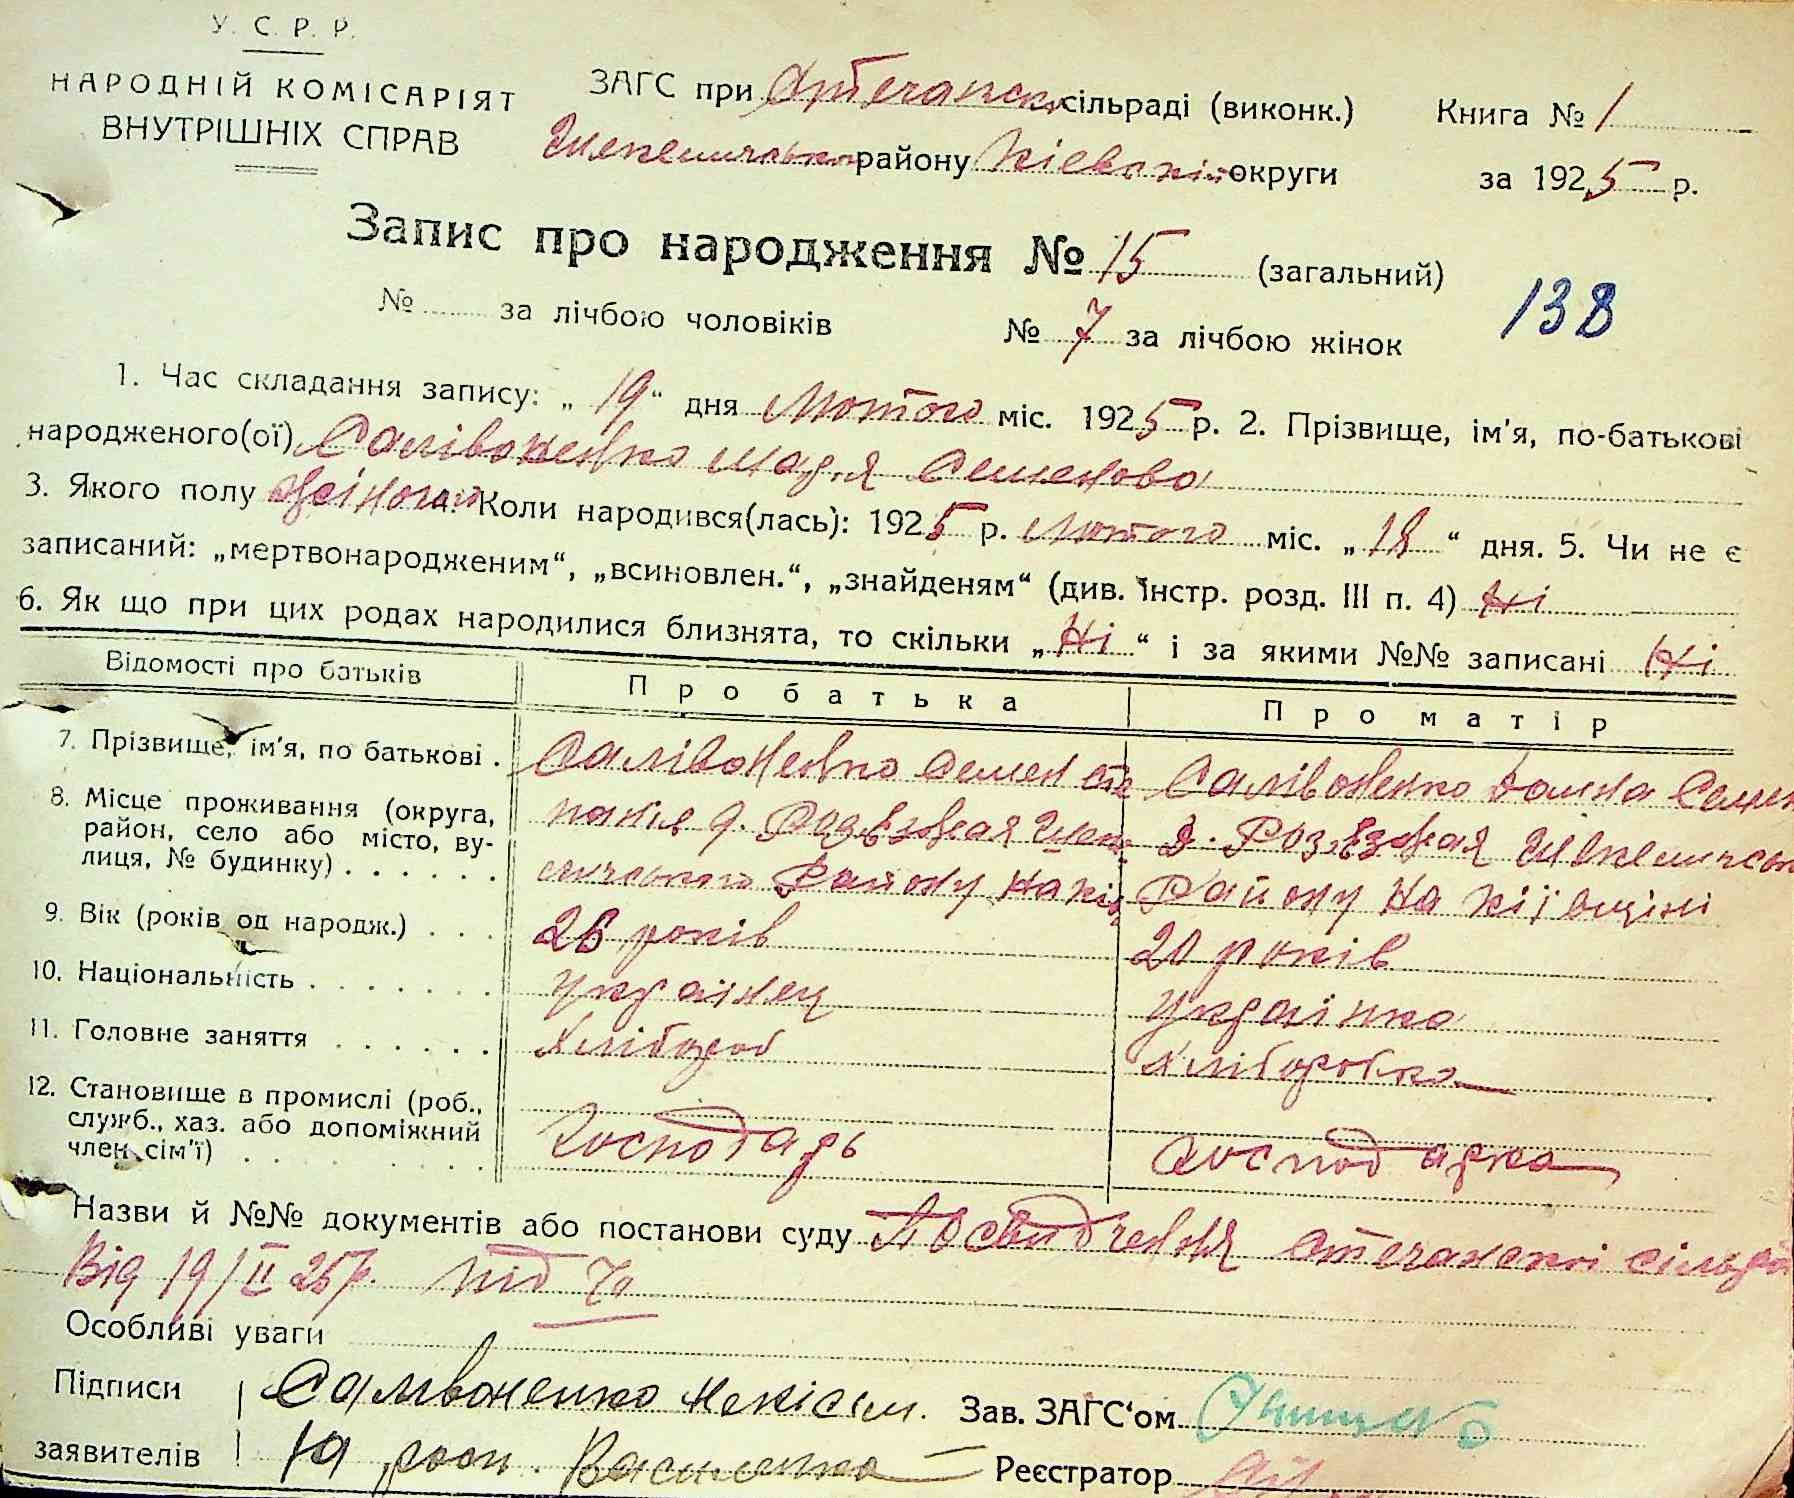 У. С. Р. Р.
НАРОДНІЙ КОМІСАРІЯТ
ВНУТРІШНІХ СПРАВ
ЗАГС при сільраді (виконк.)
району округи
Книга № 1
за 1925 р.
Запис про народження № 15 (загальний)
№ за лічбою чоловіків № 7 за лічбою жінок
138
1. Час складання запису: „ 19 “ дня Лютого міс. 1925 р. 2. Прізвище, ім'я, по-батькові
народженого(ої) Салівоненко Марія Семенова
3. Якого полу Коли народився(лась): 1925 р. Лютого міс. „ 18 “ дня. 5. Чи не є
записаний: „мертвонародженим“, „всиновлен.“, „знайденям“ (див. Інстр. розд. III п. 4) Ні
6. Як що при цих родах народилися близнята, то скільки „ Ні “ і за якими №№ записані Ні
Відомості про батьків Про батька Про матір
7. Прізвище, ім'я, по батькові . Салівоненко Семен Салівоненко Домна
8. Місце проживання (округа,
район, село або місто, ву-
лиця, № будинку) . . . . . . Району на Району на Київщині
9. Вік (років од народж.) . . . 26 років 20 років
10. Національність . . . . . . . Українец Українка
11. Головне заняття . . . . . . Хлібороб Хлібробка
12. Становище в промислі (роб.,
служб., хаз. або допоміжний
член сім'ї) . . . . . . . . Господарь Господарка
Назви й №№ документів або постанови суду Посвидчення
Від 19/II 25р. під
Особливі уваги
Підписи Салівоненко Зав. ЗАГС‘ом
заявителів Реєстратор